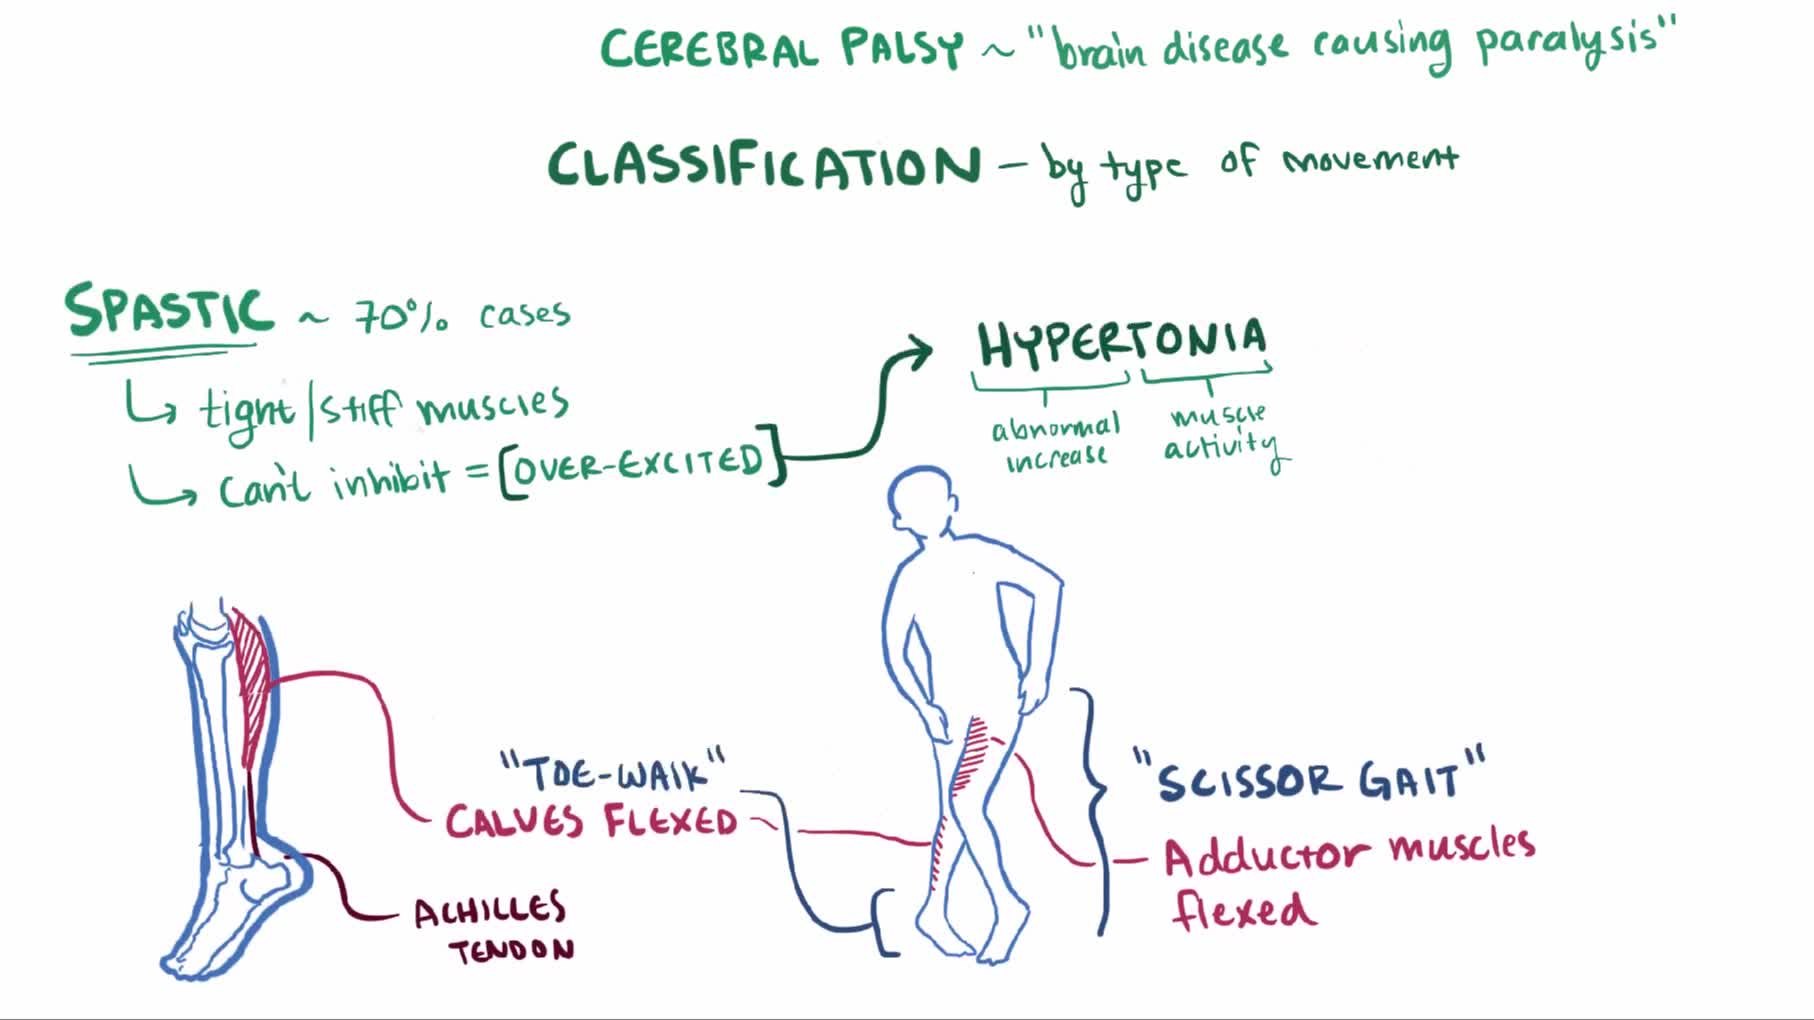 CEREBRAL PALSY ~ "brain disease causing paralysis"
CLASSIFICATION - by type of movement
SPASTIC ~ 70% cases
tight/stiff muscles
can't inhibit = [OVER-EXCITED]
HYPERTONIA
abnormal increase
muscle activity
"TOE-WALK"
CALVES FLEXED
ACHILLES
TENDON
"SCISSOR GAIT"
Adductor muscles
flexed